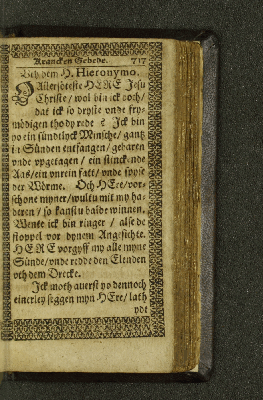 Krancken Gebede. 717
Vth dem H. Hieronymo.
Allersöteste HERE Jesu
Christe / wol bin ick doch /
dat ick so dryste vnde fry-
mödigen tho dy rede? Jck bin
yo ein sündtlyck Minsche / gantz
in Sünden entfangen / gebaren
vnde vpgetagen / ein stinckende
Aas / ein vnrein fatt / vnde spyse
der Wörme. Och HEre / vor-
schone myner / wultu mit my ha-
deren / so kanstu balde winnen.
Wente ick bin ringer / alse de
stoppel vor dynem Angesichte.
HERE vorgyff my alle myne
Sünde / vnde redde den Elenden
vth dem Drecke.
Jck moth auerst yo dennoch
einerley seggen myn HEre / lath
ydt